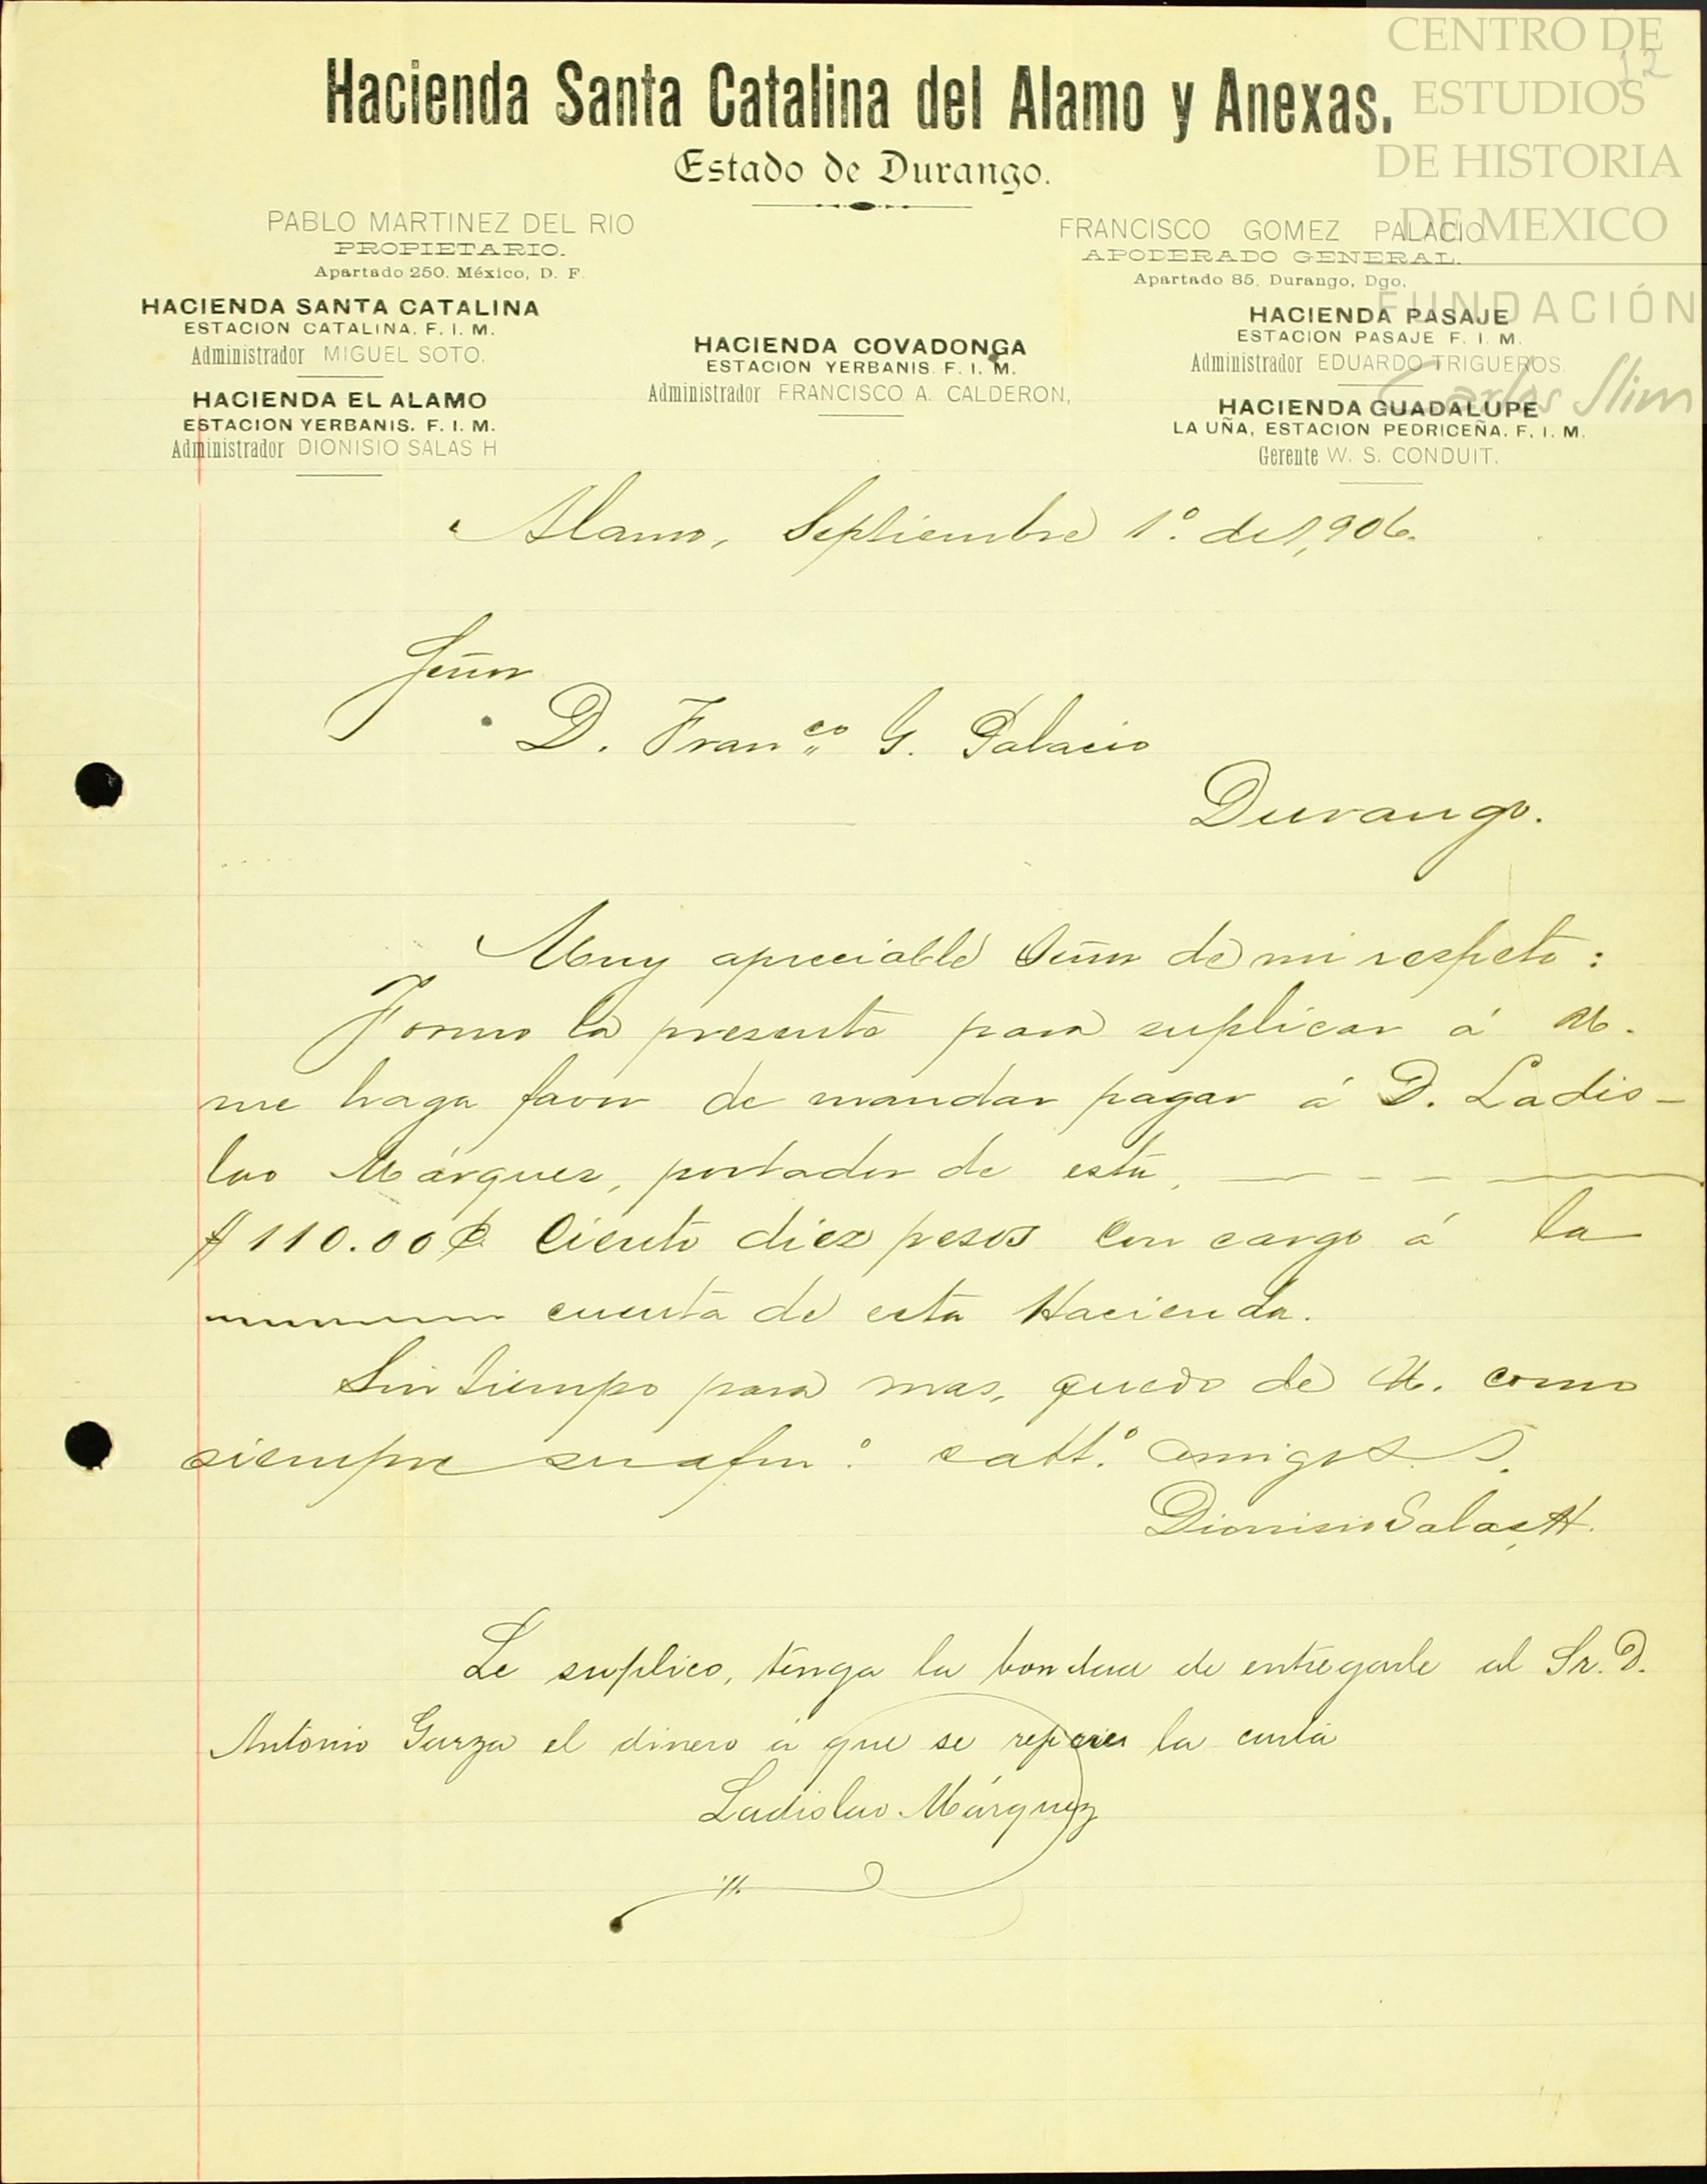 CENTRO DE
ESTUDIOS
DE HISTORIA
DE MEXICO
FUNDACIÓN
Carlos Slim
12
Hacienda Santa Catalina del Alamo y Anexas.
Estado de Durango.
PABLO MARTINEZ DEL RIO
PROPIETARIO.
Apartado 250. México, D. F.
FRANCISCO GOMEZ PALACIO
APODERADO GENERAL.
Apartado 85, Durango, Dgo.
HACIENDA SANTA CATALINA
ESTACION CATALINA. F. I. M.
Administrador MIGUEL SOTO.
HACIENDA EL ALAMO
ESTACION YERBANIS. F. I. M.
Administrador DIONISIO SALAS H
HACIENDA COVADONGA
ESTACION YERBANIS. F. I. M.
Administrador FRANCISCO A. CALDERON,
HACIENDA PASAJE
ESTACION PASAJE F. I. M.
Administrador EDUARDO TRIGUEROS.
HACIENDA GUADALUPE
LA UÑA, ESTACION PEDRICEÑA. F. I. M.
Gerente W. S. CONDUIT.
Alamo, Septiembre 1º. de 1,906.
Señor
D. Franco G. Palacio
Durango.
Muy apreciable Señor de mi respeto:
Formo la presente para suplicar á U.
me haga favor de mandar pagar á D. Ladis-
lao Márquez, portador de esta,
$110.00 ¢ Ciento diez pesos con cargo á la
cuenta de esta Hacienda.
Sin tiempo para mas, quedo de U. como
siempre su afmº. y att.º amigo S. S.
Dionisio Salas H.
Le suplico, tenga la bondad de entregarle al Sr. D.
Antonio Garza el dinero á que se refiere la carta
Ladislao Márquez